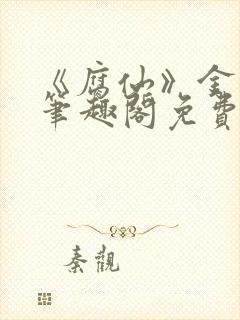 《腐仙》全
笔趣阁免費
秦觀